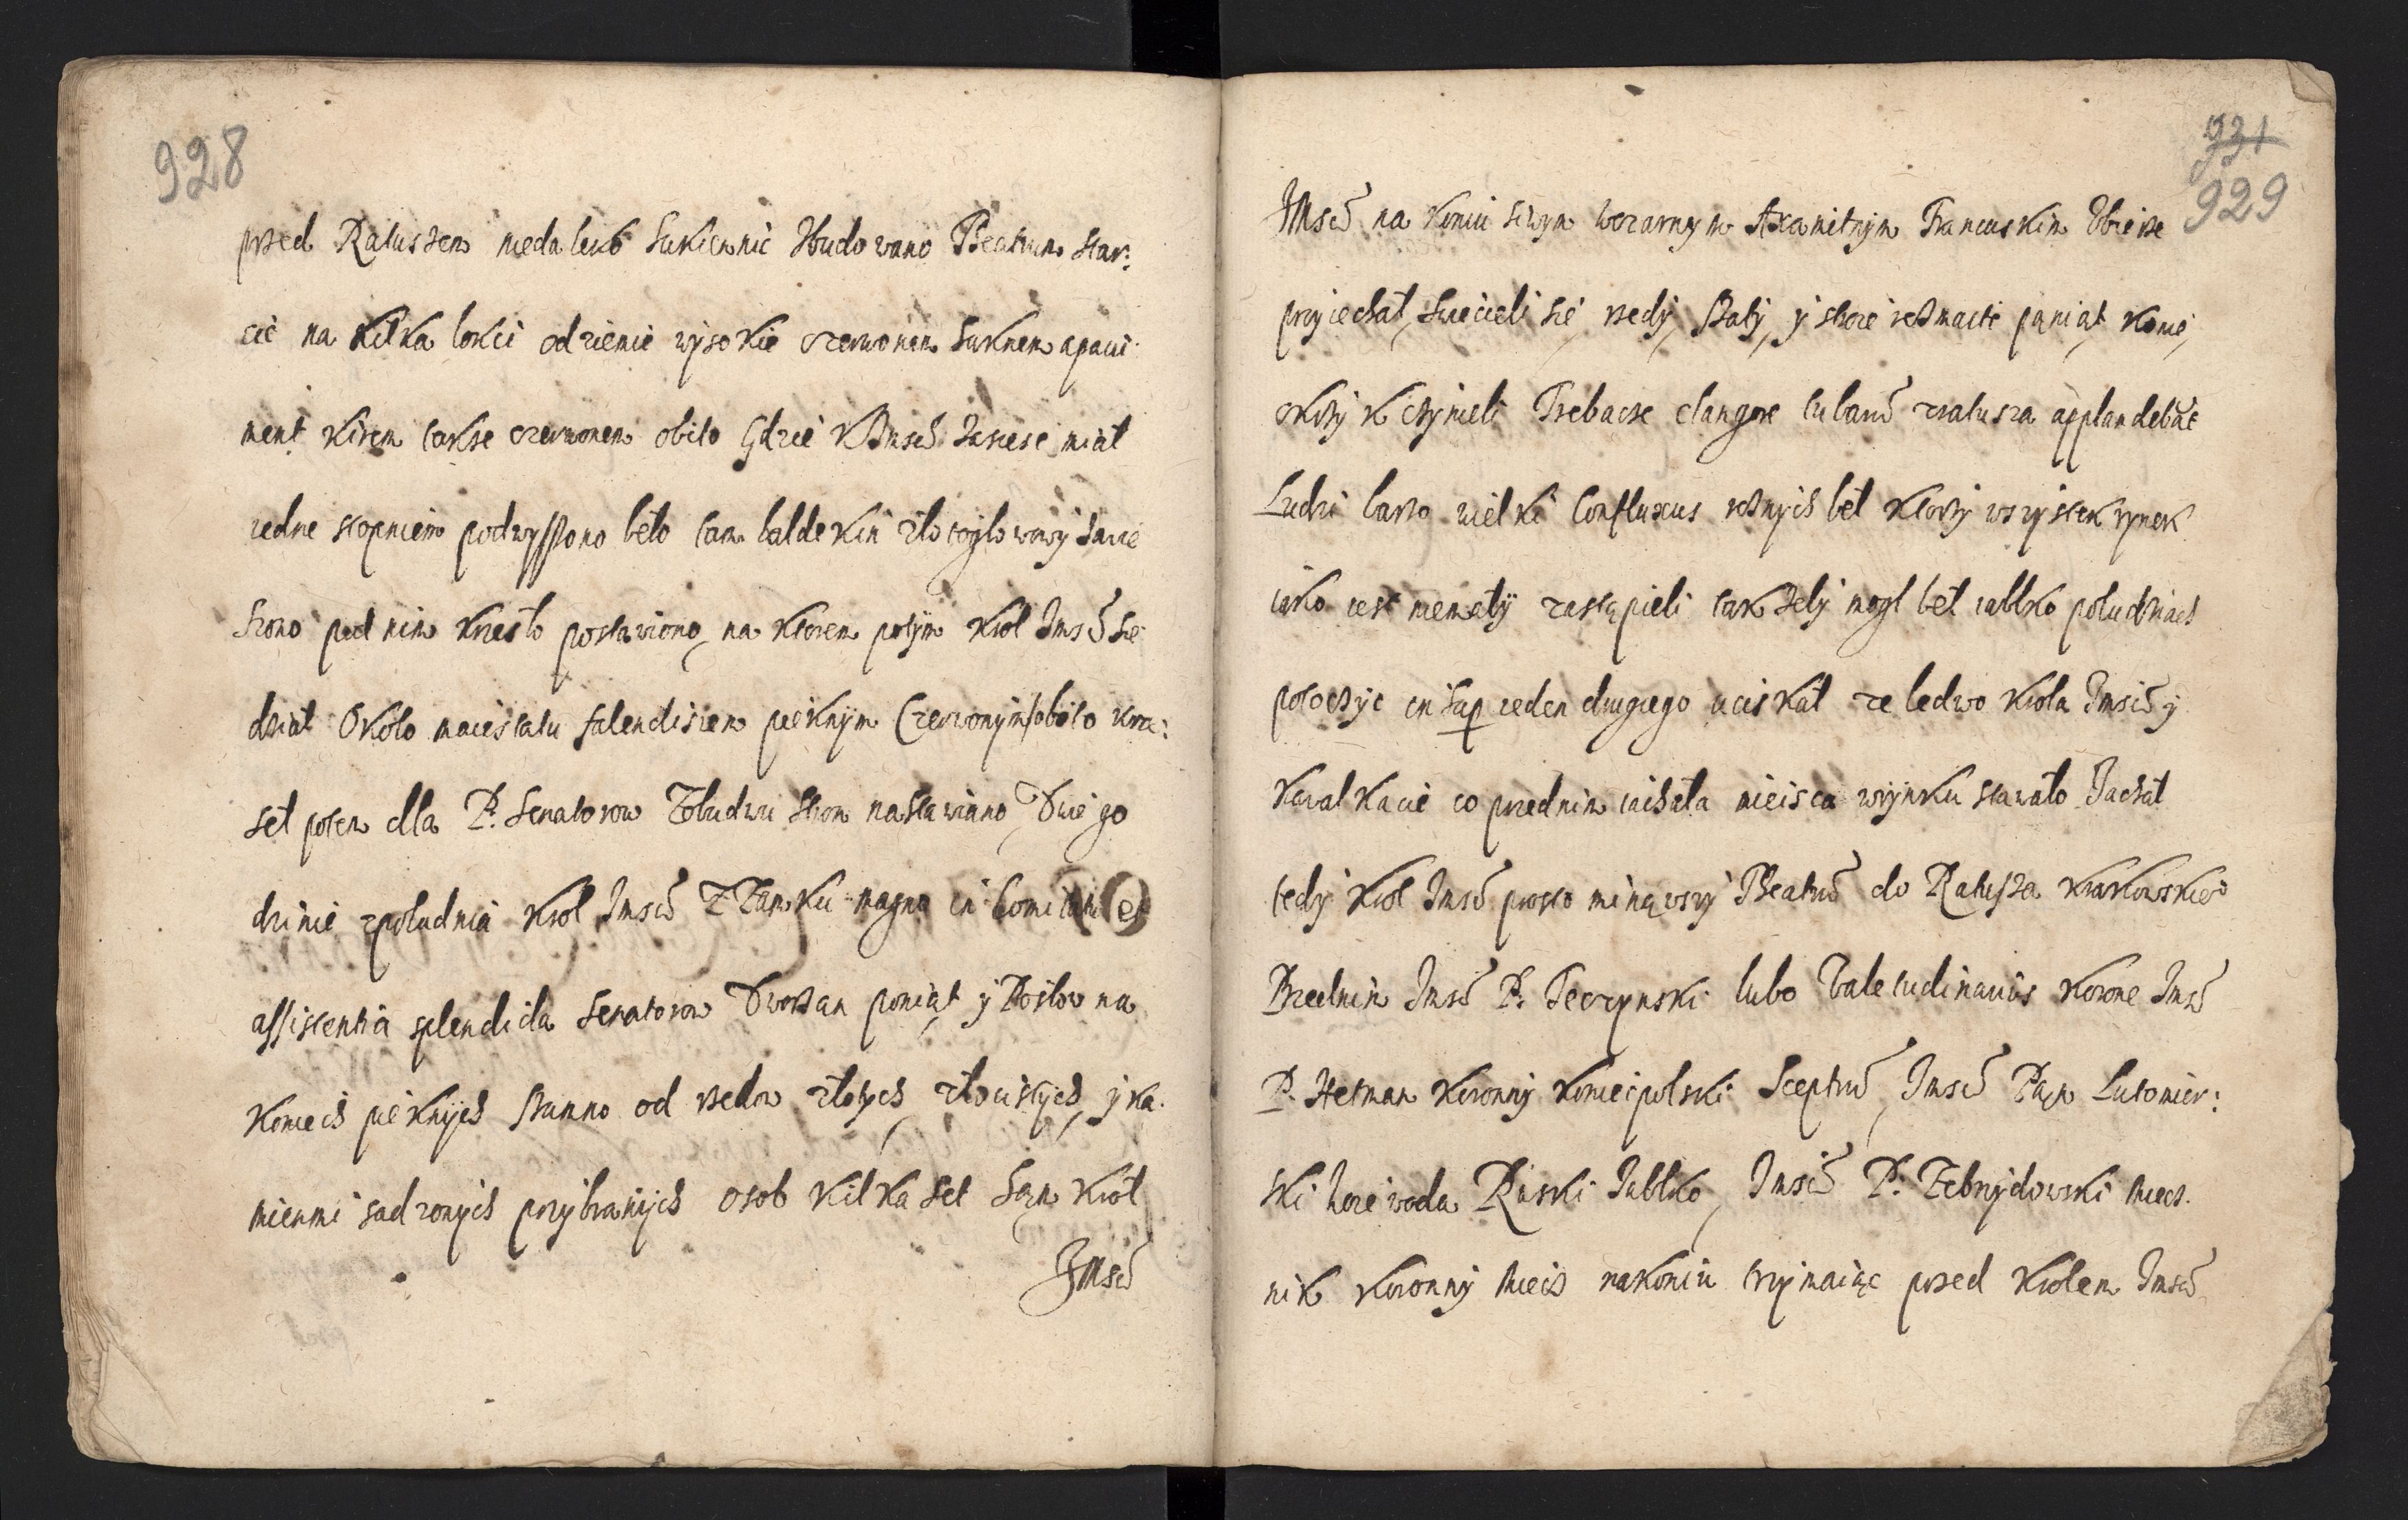 928
przed Ratuszem niedaleko Sukiennic Zbudowano Theatrum star:
cie na kilka łokci od ziemie wysokie czerwonem suknem a paui
ment kirem takze czerwonem obito Gdzie KJmsć zasieśc miał
iedne stopniem podwyszono beło tam baldekin złotogłowowy zawie
szono pod nim krzesło postawiono, na ktorem potym Krol Jmsć sie
dział Około maiestatu falendiszem pieknym czerwonym obito krze:
seł potem dla P. Senatorow Zobudwu stron nastawiano, Dwie go
dzinie zpołudnia Krol Jmsć Z Zamku magno in Comitatu et
assistentia splendida Senatorow Dworzan paniąt y Posłow na
koniech pieknych szumno od rzedow złotych, złocistych, y ka
mienmi sadzonych przybranych osob kilka set Sąm Krol
JMsć
931
929
JMsć na koniu siwym wczarnym Axamitnym Francuskim Vbierze
przyiechał, swiecieli sie rzedy, szaty, y stroie rozmaite paniąt, konie,
okrzyk czynieli Trebacze clangore tubarū zratusza applaudebāt
Ludzi barzo wielki Confluxus roznych beł ktorzy wszystek rynek
iako iest niemały zastąpieli tak zeby mogł beł iabłko po ludziach
potoczyc insup ieden drugiego uciskał ze ledwo Krola Jmsci y
kawalkacie co przednim iaichała mieisca wrynku stawało Jachał
tedy Krol Jmsć prosto minąwszy Theatrū do Ratusza krakowskiego
Przednim Jmsć P. Teczynski lubo Valetudinarius korone Jmsć
P. Hetman koronny koniecpolski Sceptrū, Jmsć Pąn Lutomier:
ski Woiewoda Ruski Jabłko, Jmsć P. Zebrzydowski miecz
nik koronny miecz nakoniu trzymaiąc przed Krolem Jmsć